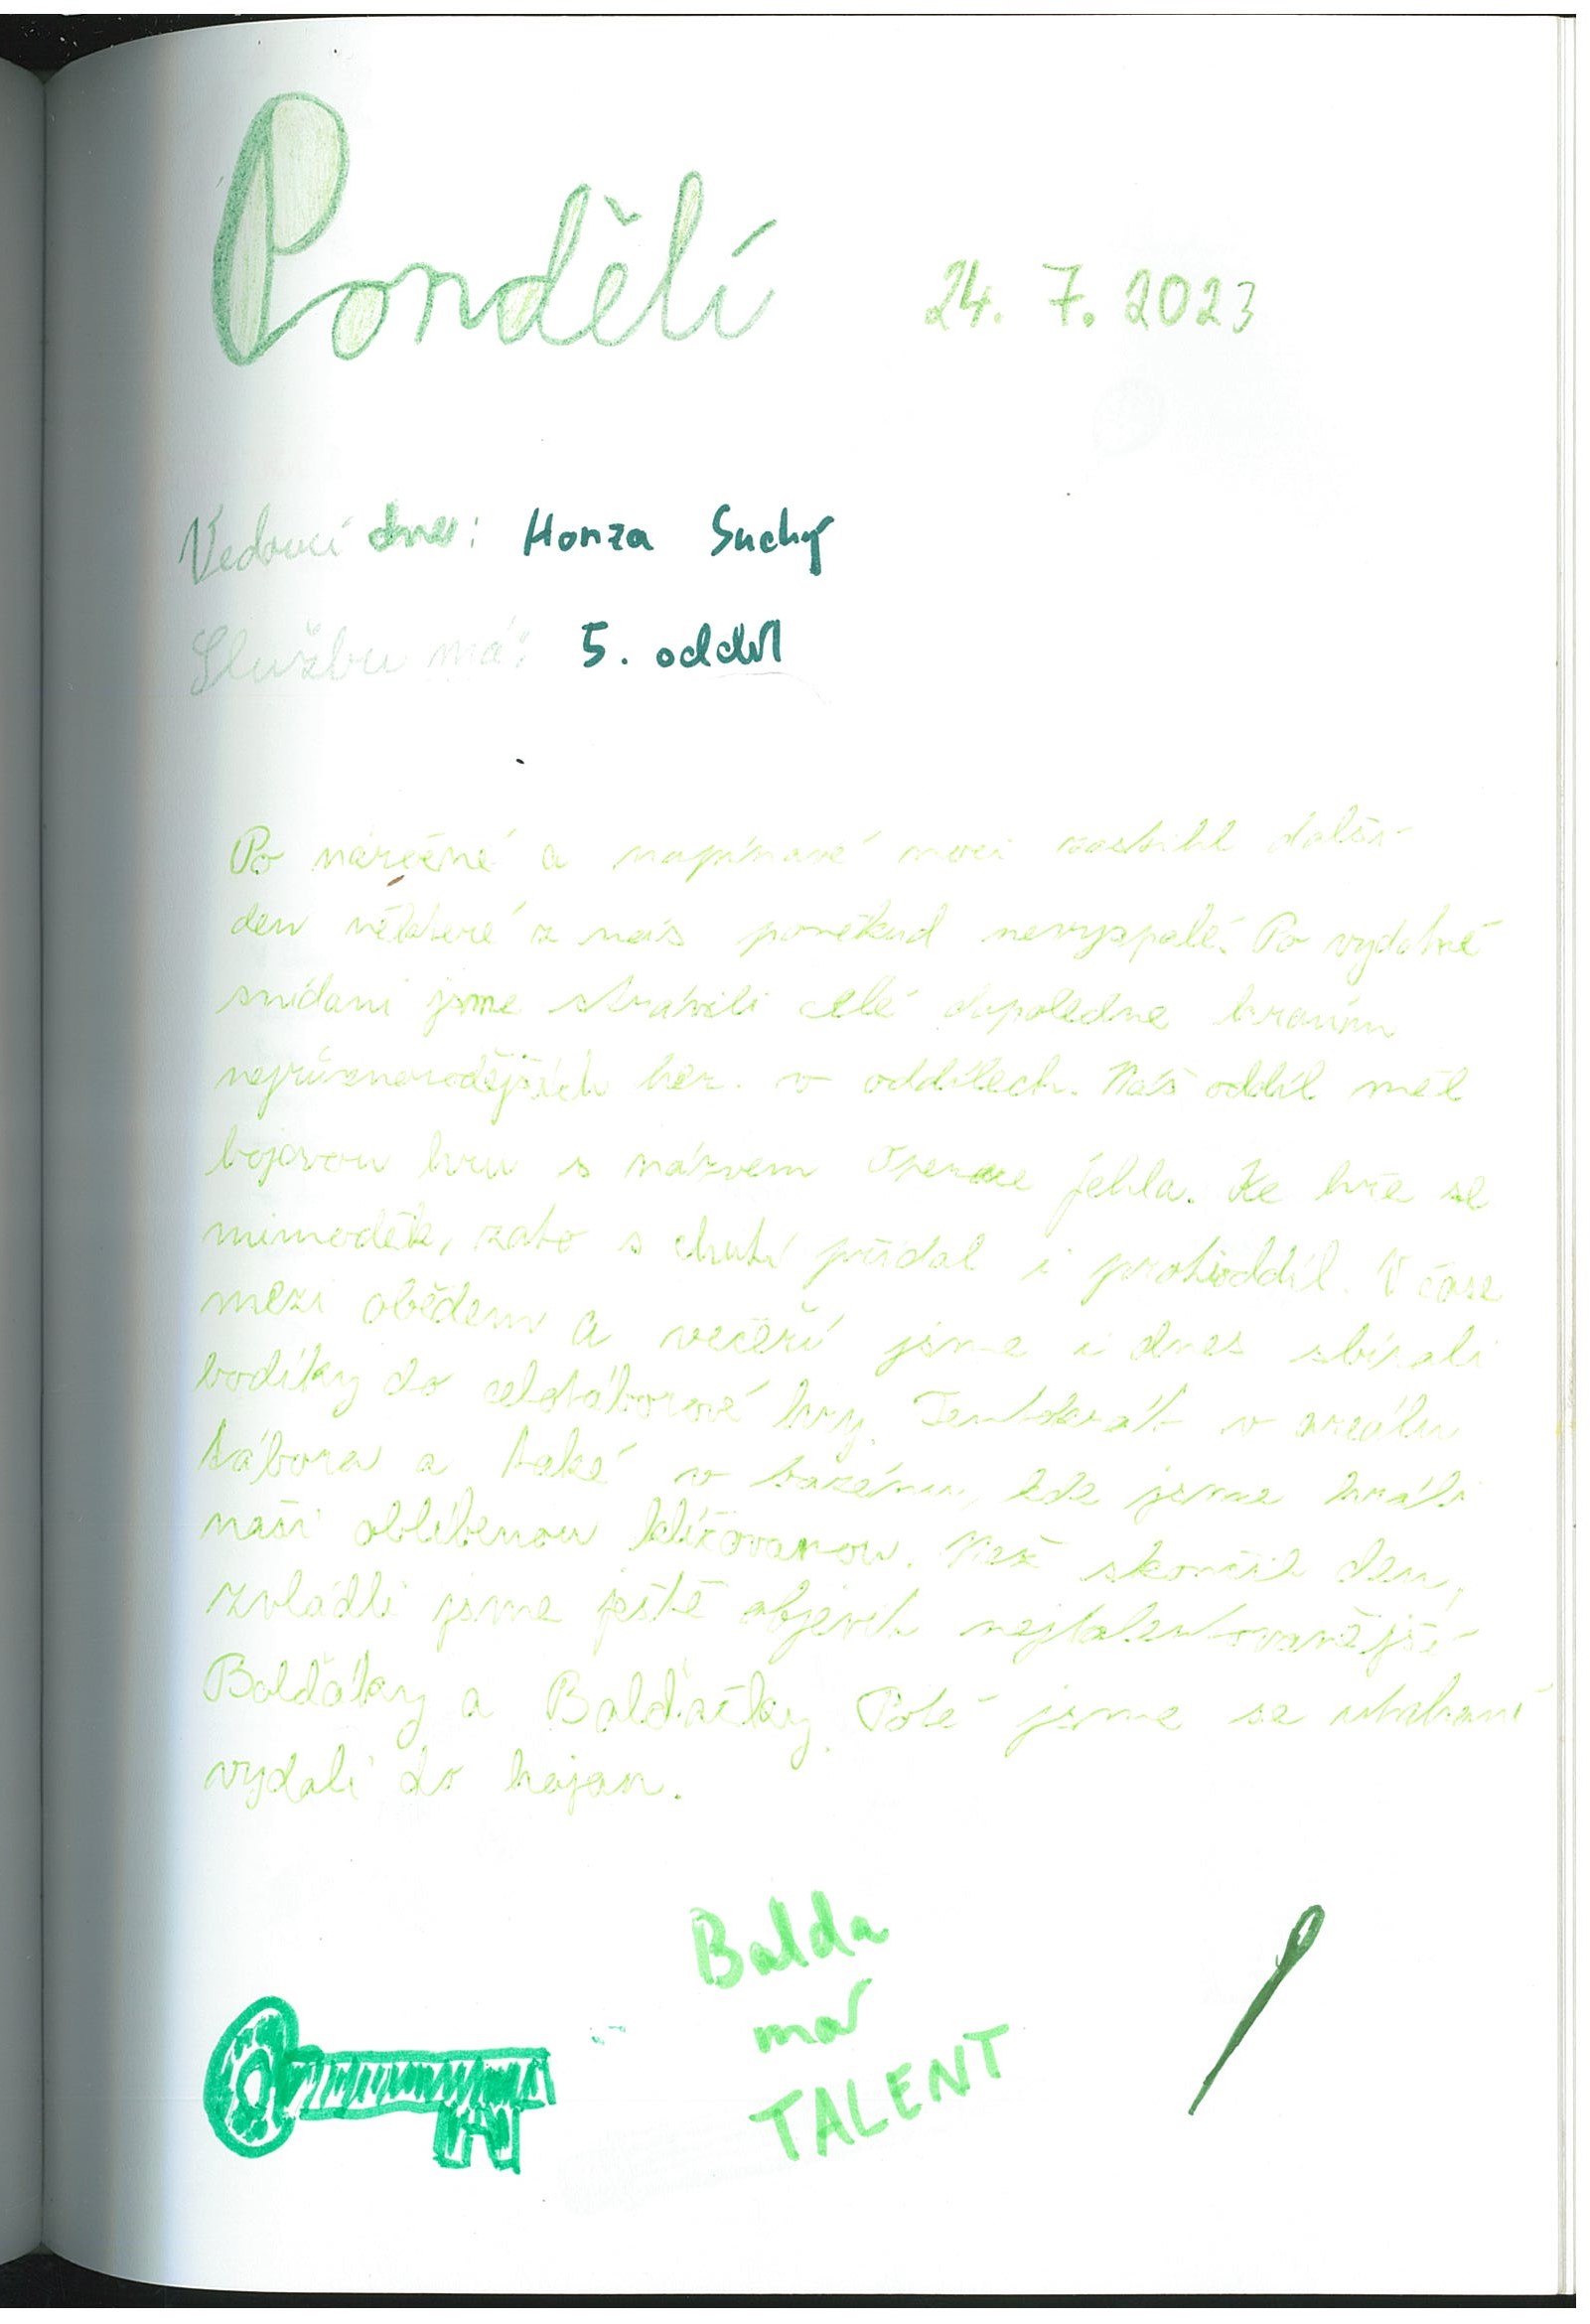 Pondělí 24. 7. 2023
Vedoucí dne: Honza Suchý
Službu má: 5. oddíl
Po náročné a napínavé noci zastihl další
den některé z nás poněkud nevyspalé. Po vydatné
snídani jsme strávili celé dopoledne hraním
nejrůznorodějších her v oddílech. Náš oddíl měl
bojovou hru s názvem Operace jehla. Ke hře se
mimoděk, zato s chutí přidal i protioddíl. V čase
mezi obědem a večeří jsme i dnes sbírali
bodíky do celotáborové hry. Tentokrát v areálu
tábora a také v bazénu, kde jsme hráli
naši oblíbenou klíčovanou. Než skončil den,
zvládli jsme ještě objevit nejtalentovanější
Balďáky a Balďačky. Poté jsme se uhnaní
vydali do hajan.
Balda
má
TALENT